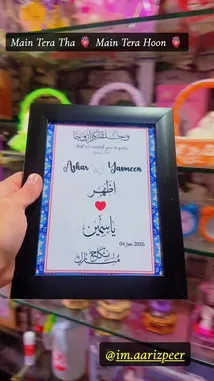 Main Tera Tha 🫀 Main Tera Hoon 🫀
وخلقنكم ازوجا
And We created you in pairs
Azhar Yasmeen
اظہر
یاسمین
04 Jan 2026
نکاح مبارک
@im.aarizpeer